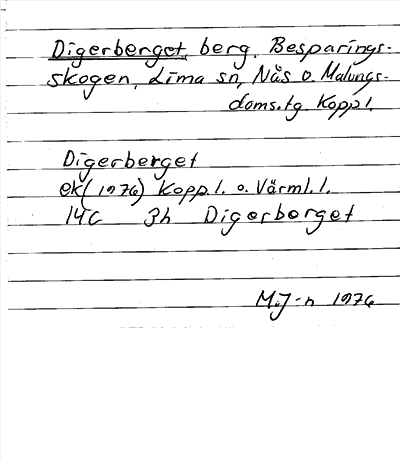 Digerberget, berg, Besparings-
skogen, Lima sn, Näs o. Malungs-
doms.tg Kopp l.
Digerberget
ek (1976) Kopp. l. o. Värml. l.
14C 3h Digerberget
M.J-n 1976